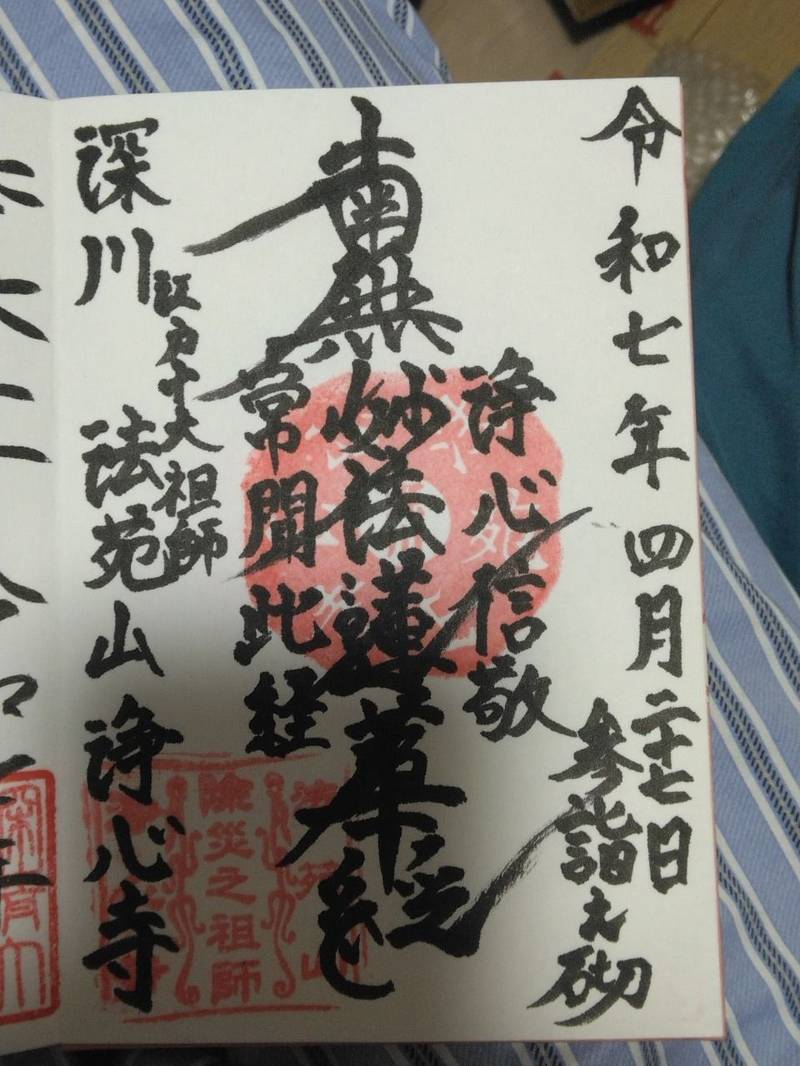 令和七年四月二十七日
参詣之砌
浄心信敬
南無妙法蓮華経
常聞此経
深川
江戸十大祖師
法苑山 浄心寺
除災之祖師